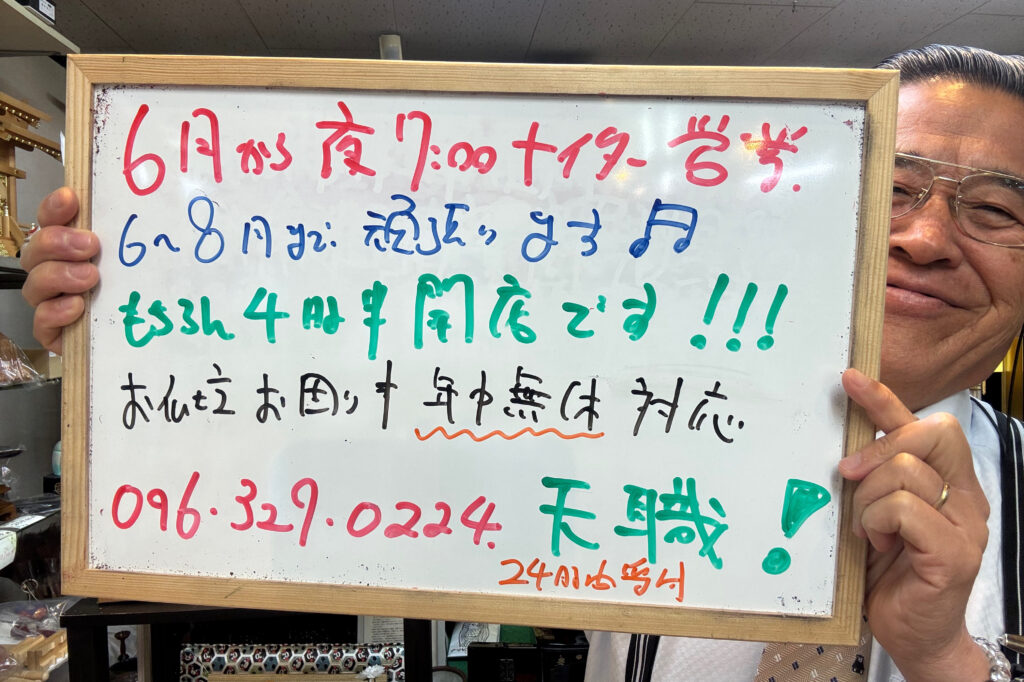 6月から夜7:00ナイター営業.
6〜8月まで頑張ります♬
もちろん4時半開店です!!!
お仏壇お困り事年中無休対応.
096.329.0224. 天職!
24時間受付